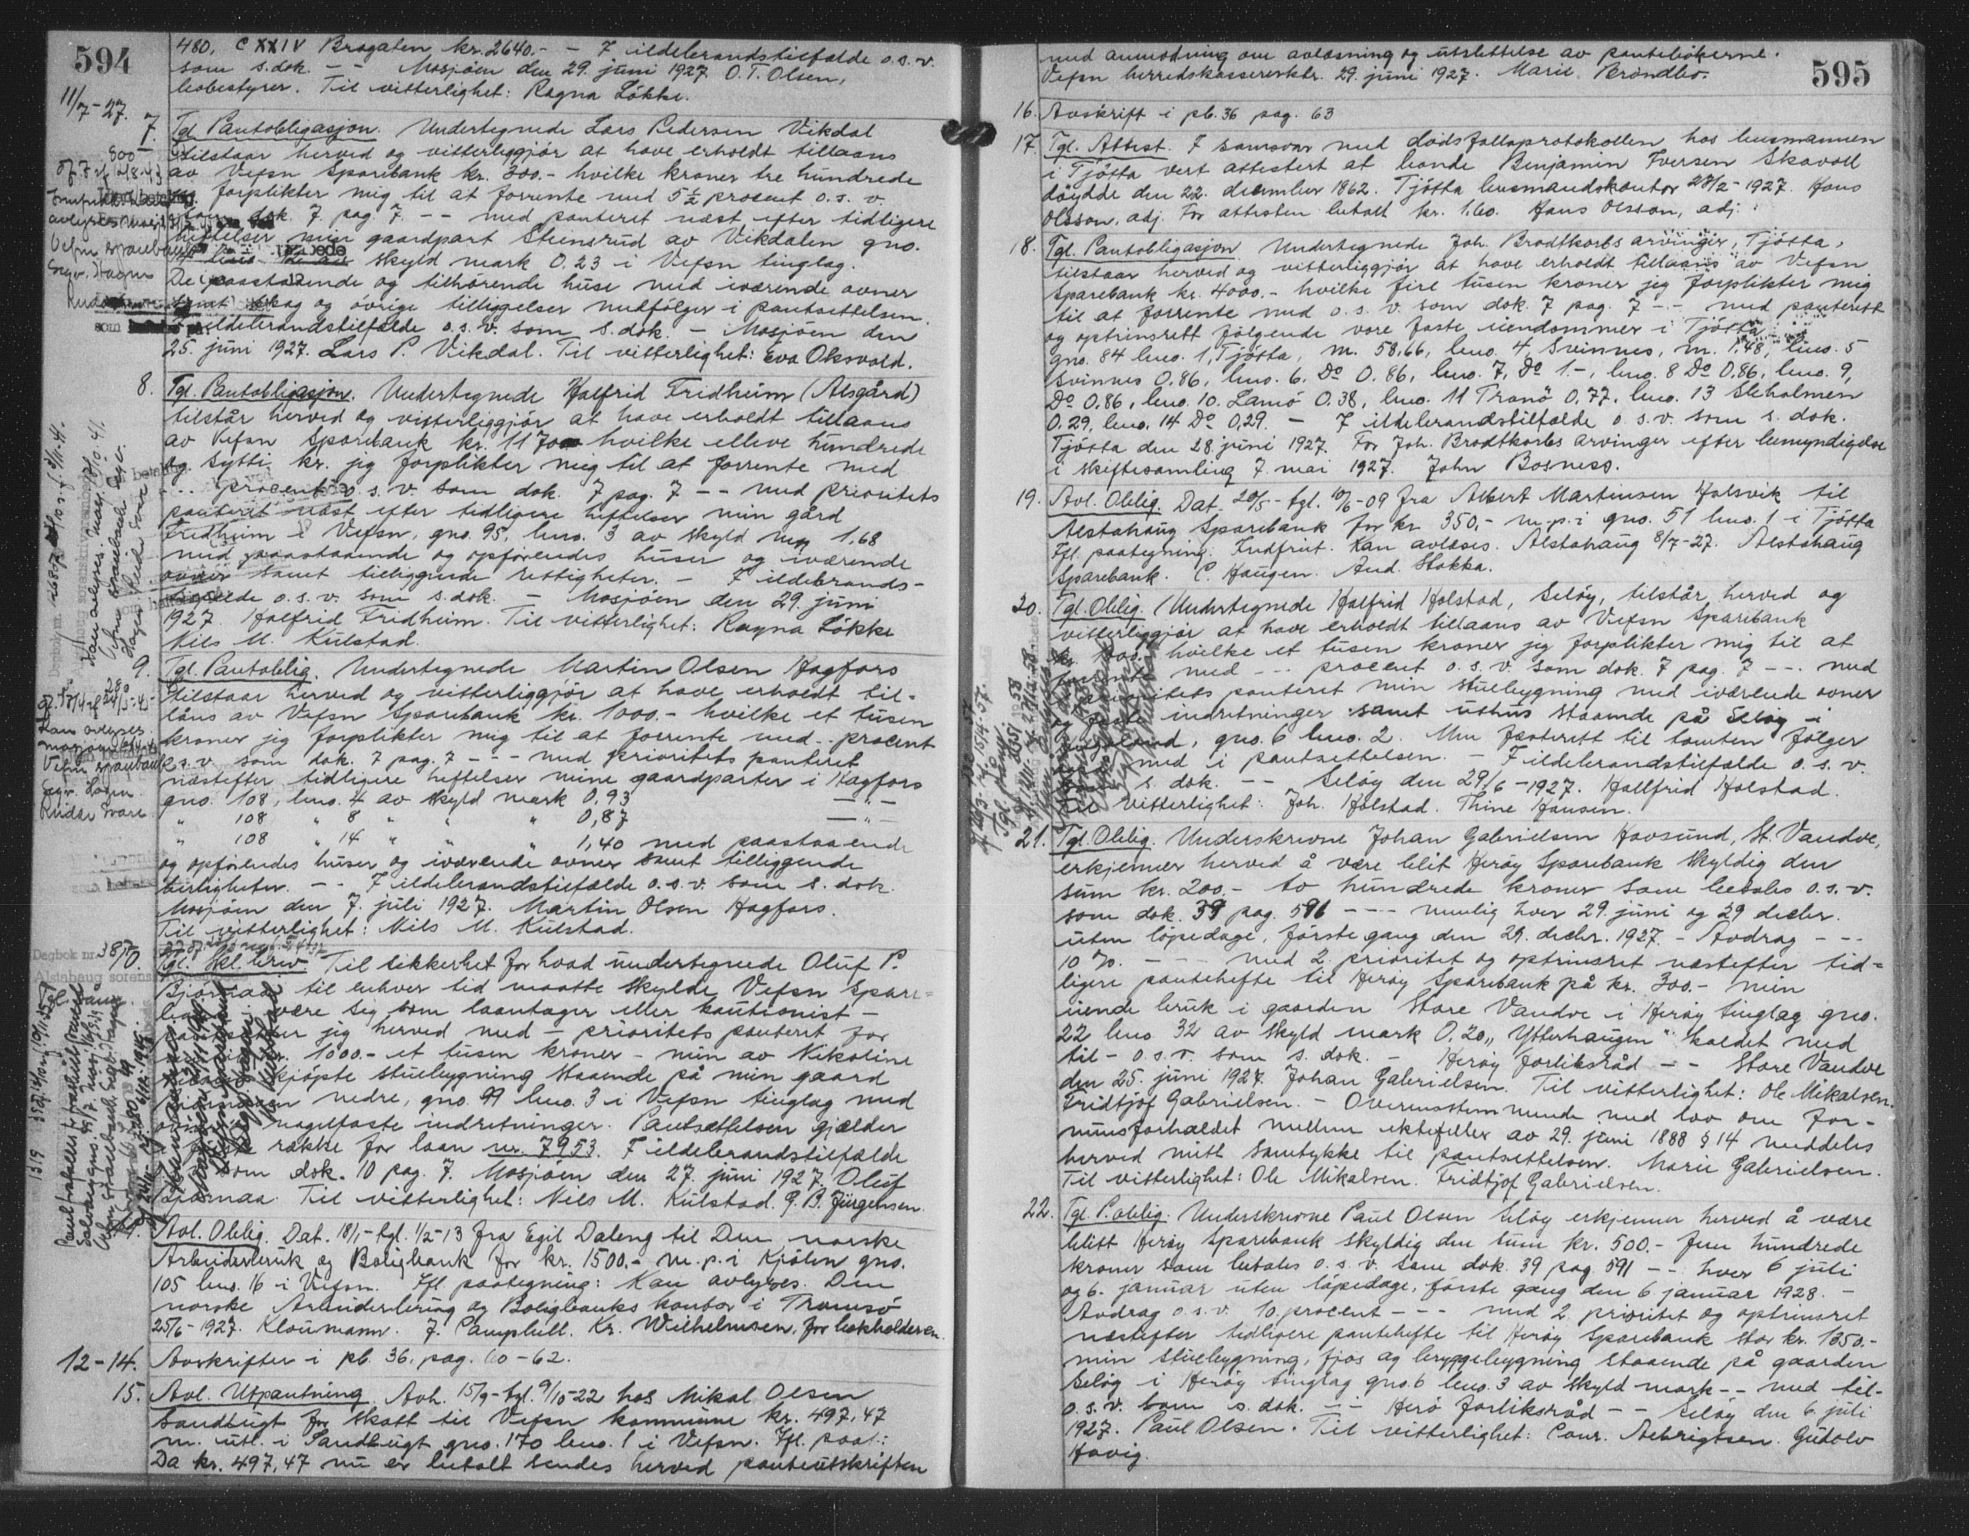 594
480. CXXIV Brogaten kr. 2640.- - I ildebrandstilfælde o.s.v.
som s.dok. - - Mosjøen den 29. juni 1927. O.T. Olsen,
bobestyrer. Til vitterlighet: Ragna Løkke.
11/7-27.
7. Tgl. Pantobligasjon. Undertegnede Lars Pedersen Vikdal
tilstaar herved og vitterliggjør at have erholdt tillaans
av Vefsn Sparebank kr. 300.- hvilke kroner tre hundrede
jeg forplikter mig til at forrente med 5½ procent o.s.v.
som dok. 7 pag. 7 - - med panteret næst efter tidligere
heftelser min gaardpart Steinsrud av Vikdalen gno.
skyld mark 0.23 i Vefsn tinglag.
De paastaaende og tilhørende huse med iværende ovner
samt skog og øvrige tilligelser medfølger i pantsettelsen.
I ildebrandstilfælde o.s.v. som s.dok. - Mosjøen den
25. juni 1927. Lars P. Vikdal. Til vitterlighet: Eva Oksvold.
8. Tgl. Pantobligasjon. Undertegnede Halfrid Fridheim (Alsgård)
tilstår herved og vitterliggjør at have erholdt tillaans
av Vefsn Sparebank kr. 1170 hvilke elleve hundrede
og sytti kr. jeg forplikter mig til at forrente med
... procent o.s.v. som dok. 7 pag. 7 - - med prioritets
panteret næst efter tidligere heftelser min gård
Fridheim i Vefsn, gno. 95, bno. 3 av skyld mrk 1,68
med paastaaende og opførendes huser og iværende
ovner samt tilliggende rettigheter. - I ildebrands-
tilfælde o.s.v. som s.dok. - Mosjøen den 29. juni
1927. Halfrid Fridheim. Til vitterlighet: Ragna Løkke
Nils M. Kulstad.
9. Tgl. Pantoblig. Undertegnede Martin Olsen Hagfors
tilstaar herved og vitterliggjør at have erholdt til-
låns av Vefsn Sparebank kr. 1000.- hvilke et tusen
kroner jeg forplikter mig til at forrente med .. procent
o.s.v. som dok. 7 pag. 7 - - - med prioritets panteret
næstefter tidligere heftelser mine gaardparter i Hagfors
gno. 108, bno. 4 av skyld mark 0,93
" 108 " 8 " " " 0,87
" 108 " 14 " " " 1,40 med paastaaende
og opførendes huser og iværende ovner samt tilliggende
herligheter. - - I ildebrandstilfælde o.s.v. som s.dok.
Mosjøen den 7. juli 1927. Martin Olsen Hagfors.
Til vitterlighet: Nils M. Kulstad.
10. Tgl. Skl.brev Til sikkerhet for hvad undertegnede Oluf P.
Bjørnaa til enhver tid maatte skylde Vefsn Spare-
være sig som laantager eller kautionist -
jeg herved med - prioritets panteret for
kr. 1000.- et tusen kroner - min av Nikoline
kjøpte stuebygning staaende på min gaard
nedre, gno. 99 bno. 3 i Vefsn tinglag med
nagelfaste indretninger. Pantsettelsen gjælder
række for laan nr. 7953. I ildebrandstilfælde
som dok. 10 pag. 7. Mosjøen den 27. juni 1927. Oluf
Bjørnaa. Til vitterlighet: Nils M. Kulstad. G.B. Jürgensen.
Avl. Oblig. Dat. 18/1-tgl. 1/2-13 fra Egil Daleng til Den norske
Arbeiderbruk og Boligbank for kr. 1500.- m.p. i Kjølen gno.
105 bno. 16 i Vefsn. Ifl. paategning: Kan avlyses. Den
norske Arbeiderbruk og Boligbanks kontor i Tromsø
25/6-1927. Kloumann. J. Camphill. Kr. Wilhelmsen, for bokholderen.
12-14. Avskrifter i pb. 36, pag. 60-62.
15. Avl. Utpantning. Avh. 15/9-tgl. 9/10-22 hos Mikal Olsen
Sandbugt for skatt til Vefsn kommune kr. 497,47
m. utl. i Sandbugt gno. 170 bno. 1 i Vefsn. Ifl. paat.:
Da kr. 497,47 nu er betalt sendes herved panteutskriften
595
med anmodning om avløsning og utslettelse av pantebøkerne.
Vefsn herredskassererktr. 29. juni 1927. Marie Brøndbo.
16. Avskrift i pb. 36 pag. 63
17. Tgl. Attest. I samsvar med dødsfallsprotokollen hos lensmannen
i Tjøtta vert attestert at bonde Benjamin Iversen Skovoll
døydde den 22. december 1862. Tjøtta lensmandskontor 28/2-1927. Hans
Olsson, adj. For attesten betalt kr. 1.60. Hans Olsson, adj.
18. Tgl. Pantobligasjon. Undertegnede Joh. Brodtkorbs arvinger, Tjøtta,
tilstaar herved og vitterliggjør at have erholdt tillaans av Vefsn
Sparebank kr. 4000.- hvilke fire tusen kroner jeg forplikter mig
til at forrente med o.s.v. som dok. 7 pag. 7 - - med panterett
og optrinsrett følgende vore faste eiendommer i Tjøtta
gno. 84 bno. 1, Tjøtta, m. 58.66, bno. 4, Svinnes, m. 1,48, bno. 5
Svinnes 0.86, bno. 6. Do 0.86, bno. 7, Do 1.-, bno. 8 Do 0.86, bno. 9,
Do 0.86, bno. 10. Lamø 0.38, bno. 11 Tranø 0.77. bno. 13 Sleholmen
0.29, bno. 14 Do 0.29. - I ildebrandstilfælde o.s.v. som s.dok.
Tjøtta den 28. juni 1927. For Joh. Brodtkorbs arvinger efter bemyndigelse
i skiftesamling 7. mai 1927. John Bosness.
19. Avl. Oblig. Dat. 20/5-tgl. 10/6-09 fra Albert Martinsen Halsvik til
Alstahaug Sparebank for kr. 350.- m.p. i gno. 51 bno. 1 i Tjøtta
Ifl. paategning. Indfriet. Kan avløses. Alstahaug 8/7-27. Alstahaug
Sparebank. C. Haugen. And. Stokka.
20. Tgl. Oblig. Undertegnede Halfrid Holstad, Seløy, tilstår herved og
vitterliggjør at have erholdt tillaans av Vefsn Sparebank
hvilke et tusen kroner jeg forplikter mig til at
forrente med - - procent o.s.v. som dok. 7 pag. 7 - - - med
prioritets panteret min stuebygning med iværende ovner
og indretninger samt uthus staaende på Seløy i
gno. 6 bno. 2. Min festerett til tomten følger
med i pantsettelsen. - I ildebrandstilfælde o.s.v.
s.dok. - - Seløy den 29/6-1927. Hallfrid Holstad.
Til vitterlighet: Joh. Holstad. Thine Hansen.
21. Tgl. Oblig. Underskrevne Johan Gabrielsen Havsund, St. Vandve,
erkjenner herved å være blit Herøy Sparebank skyldig den
sum kr. 200.- to hundrede kroner som betales o.s.v.
som dok. 39 pag. 591 - - - nemlig hver 29. juni og 29 decbr.
uten løpedage, første gang den 29. decbr. 1927. - Avdrag - - -
10 %. - - - med 2. prioritet og optrinsret næstefter tid-
ligere pantehefte til Herøy Sparebank på kr. 300.- min
eiende bruk i gaarden Store Vandve i Herøy tinglag gno.
22 bno 32 av skyld mark 0.20 „Ytterhaugen" kaldet med
til- o.s.v. som s.dok. - Herøy forliksråd - - Store Vandve
den 25. juni 1927. Johan Gabrielsen. Til vitterlighet: Ole Mikalsen.
Fridtjof Gabrielsen. - Overensstemmende med lov om for-
muesforholdet mellem ektefeller av 29. juni 1888 § 14 meddeles
herved mitt samtykke til pantsettelsen. Marie Gabrielsen.
Til vitterlighet: Ole Mikalsen. Fridtjof Gabrielsen.
22. Tgl. P.oblig. Underskrevne Paul Olsen Seløy erkjenner herved å være
blitt Herøy Sparebank skyldig den sum kr. 500.- fem hundrede
kroner som betales o.s.v. som dok. 39 pag. 591 - - hver 6 juli
og 6. januar uten løpedage, første gang den 6 januar 1928. -
Avdrag o.s.v. 10 procent - - - med 2. prioritet og optrinsret
næstefter tidligere pantehefte til Herøy Sparebank stor kr. 1350.-
min stuebygning, fjøs og bryggebygning staaende på gaarden
Seløy i Herøy tinglag gno. 6 bno. 3 av skyld mark - - med til-
o.s.v. som s.dok. - - Herø forliksråd - - Seløy den 6. juli
1927. Paul Olsen. Til vitterlighet: Conr. Aebrigtsen. Gudolv
Havig.